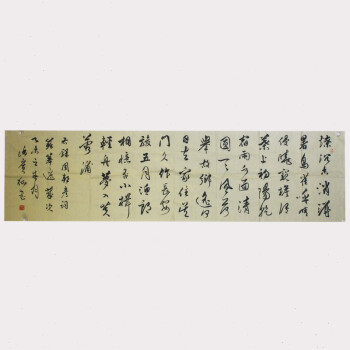 燎沉香消溽
暑鳥雀呼晴
侵曉窺檐語
葉上初陽乾
宿雨水面清
圓一一風荷
舉故鄉遙何
日去家住吳
門久作長安
旅五月漁郎
相憶否小楫
輕舟夢入芙
蓉浦
錄周邦彥詞
蘇幕遮歲次
之